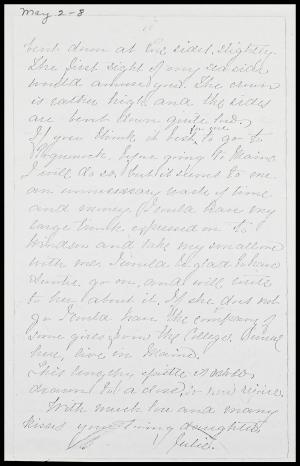 May 2-8
bent down at the sides slightly.
The first sight of my sea side
would amuse you. The crown
is rather high and the sides
are bent down quite bad.
If you think it best for me to go to
before going to Maine
I will do so, but it seems to me
an unnecessary waste of time
and money. I could have my
large trunk expressed on to
Windsor and take my small one
with me. I would be glad to have
go on, and will write
to her about it. If she does not
go I could have the company of
some girls from the College.
here, live in Maine.
This lengthy epistle
drawn to a close, so now rejoice.
With much love and many
kisses your loving daughter
Julie.